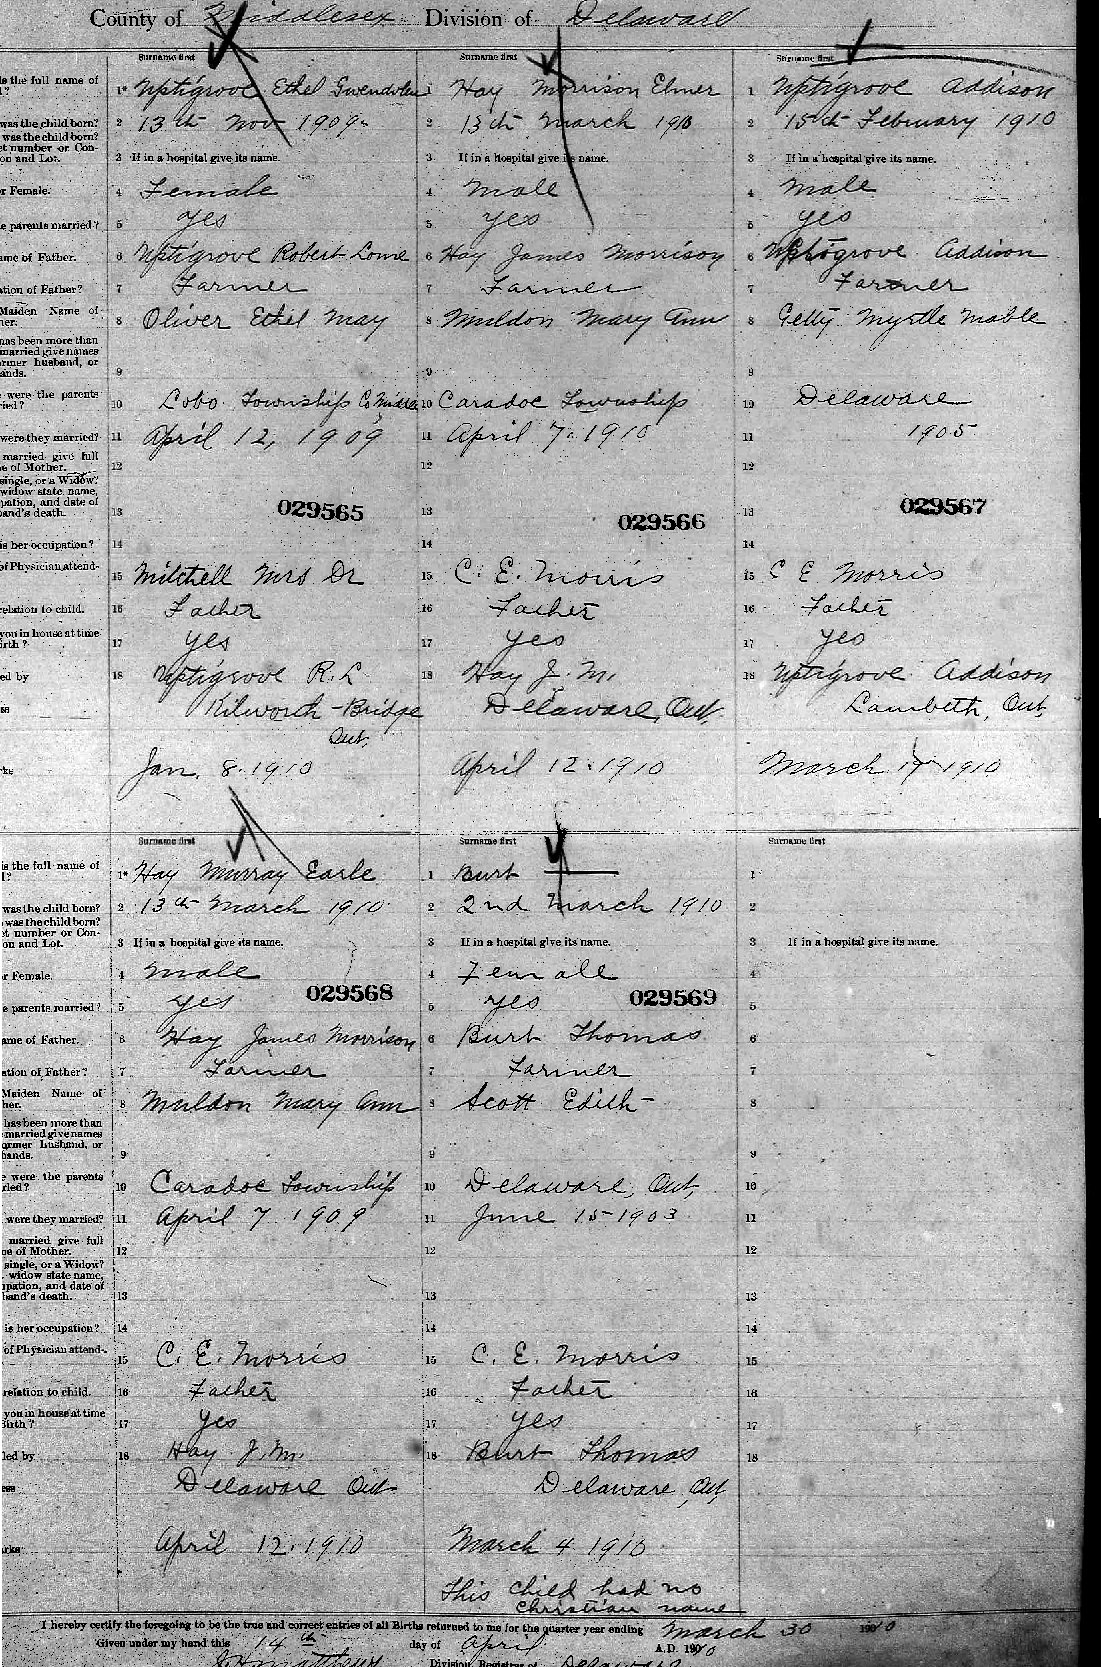 County of Middlesex Division of Delaware
Surname first Surname first Surname first
is the full name of 1* Uptigrove Ethel Gwendolen 1 Hay Morrison Elmer 1 Uptigrove Addison
was the child born? 2 13th Nov 1909 2 13th March 1910 2 15th February 1910
was the child born?
et number or Con-
on and Lot. 3 If in a hospital give its name. 3 If in a hospital give its name. 3 If in a hospital give its name.
r Female. 4 Female 4 Male 4 Male
e parents married? 5 yes 5 yes 5 yes
ame of Father. 6 Uptigrove Robert Lorne 6 Hay James Morrison 6 Uptigrove Addison
ation of Father? 7 Farmer 7 Farmer 7 Farmer
Maiden Name of
her. 8 Oliver Ethel May 8 Muldon Mary Ann 8 Getty Myrtle Mable
has been more than
married give names
ormer husband, or
ands. 9 9 9
were the parents
ried? 10 Lobo Township Co Middx 10 Caradoc Township 10 Delaware
were they married? 11 April 12, 1909 11 April 7. 1910 11 1905
married give full
ne of Mother. 12 12 12
single, or a Widow?
widow state name,
pation, and date of
band's death. 13 029565 13 029566 13 029567
is her occupation? 14 14 14
of Physician attend- 15 Mitchell Mrs Dr 15 C. E. Morris 15 C E Morris
relation to child. 16 Father 16 Father 16 Father
you in house at time
irth? 17 yes 17 yes 17 yes
ed by 18 Uptigrove R. L 18 Hay J. M. 18 Uptigrove Addison
ss Kilworth-Bridge Delaware, Ont, Lambeth, Ont,
Ont,
rks Jan. 8. 1910 April 12. 1910 March 17 1910
Surname first Surname first Surname first
is the full name of 1* Hay Murray Earle 1 Burt — 1
was the child born? 2 13th March 1910 2 2nd March 1910 2
was the child born?
et number or Con-
on and Lot. 3 If in a hospital give its name. 3 If in a hospital give its name. 3 If in a hospital give its name.
r Female. 4 Male 4 Female 4
e parents married? 5 yes 029568 5 yes 029569 5
ame of Father. 6 Hay James Morrison 6 Burt Thomas 6
ation of Father? 7 Farmer 7 Farmer 7
Maiden Name of
her. 8 Muldon Mary Ann 8 Scott Edith 8
has been more than
married give names
ormer husband, or
bands. 9 9 9
were the parents
ried? 10 Caradoc Township 10 Delaware, Ont, 10
were they married? 11 April 7 1909 11 June 15 1903 11
married give full
ne of Mother. 12 12 12
single, or a Widow?
widow state name,
upation, and date of
band's death. 13 13 13
is her occupation? 14 14 14
of Physician attend- 15 C. E. Morris 15 C. E. Morris 15
relation to child. 16 Father 16 Father 16
you in house at time
Birth? 17 yes 17 yes 17
led by 18 Hay J. M. 18 Burt Thomas 18
ess Delaware Ont Delaware, Ont,
arks April 12. 1910 March 4 1910
This child had no
Christian name
I hereby certify the foregoing to be the true and correct entries of all Births returned to me for the quarter year ending March 30 1910
Given under my hand this 14th day of April A.D. 1910
Division Registrar of Delaware